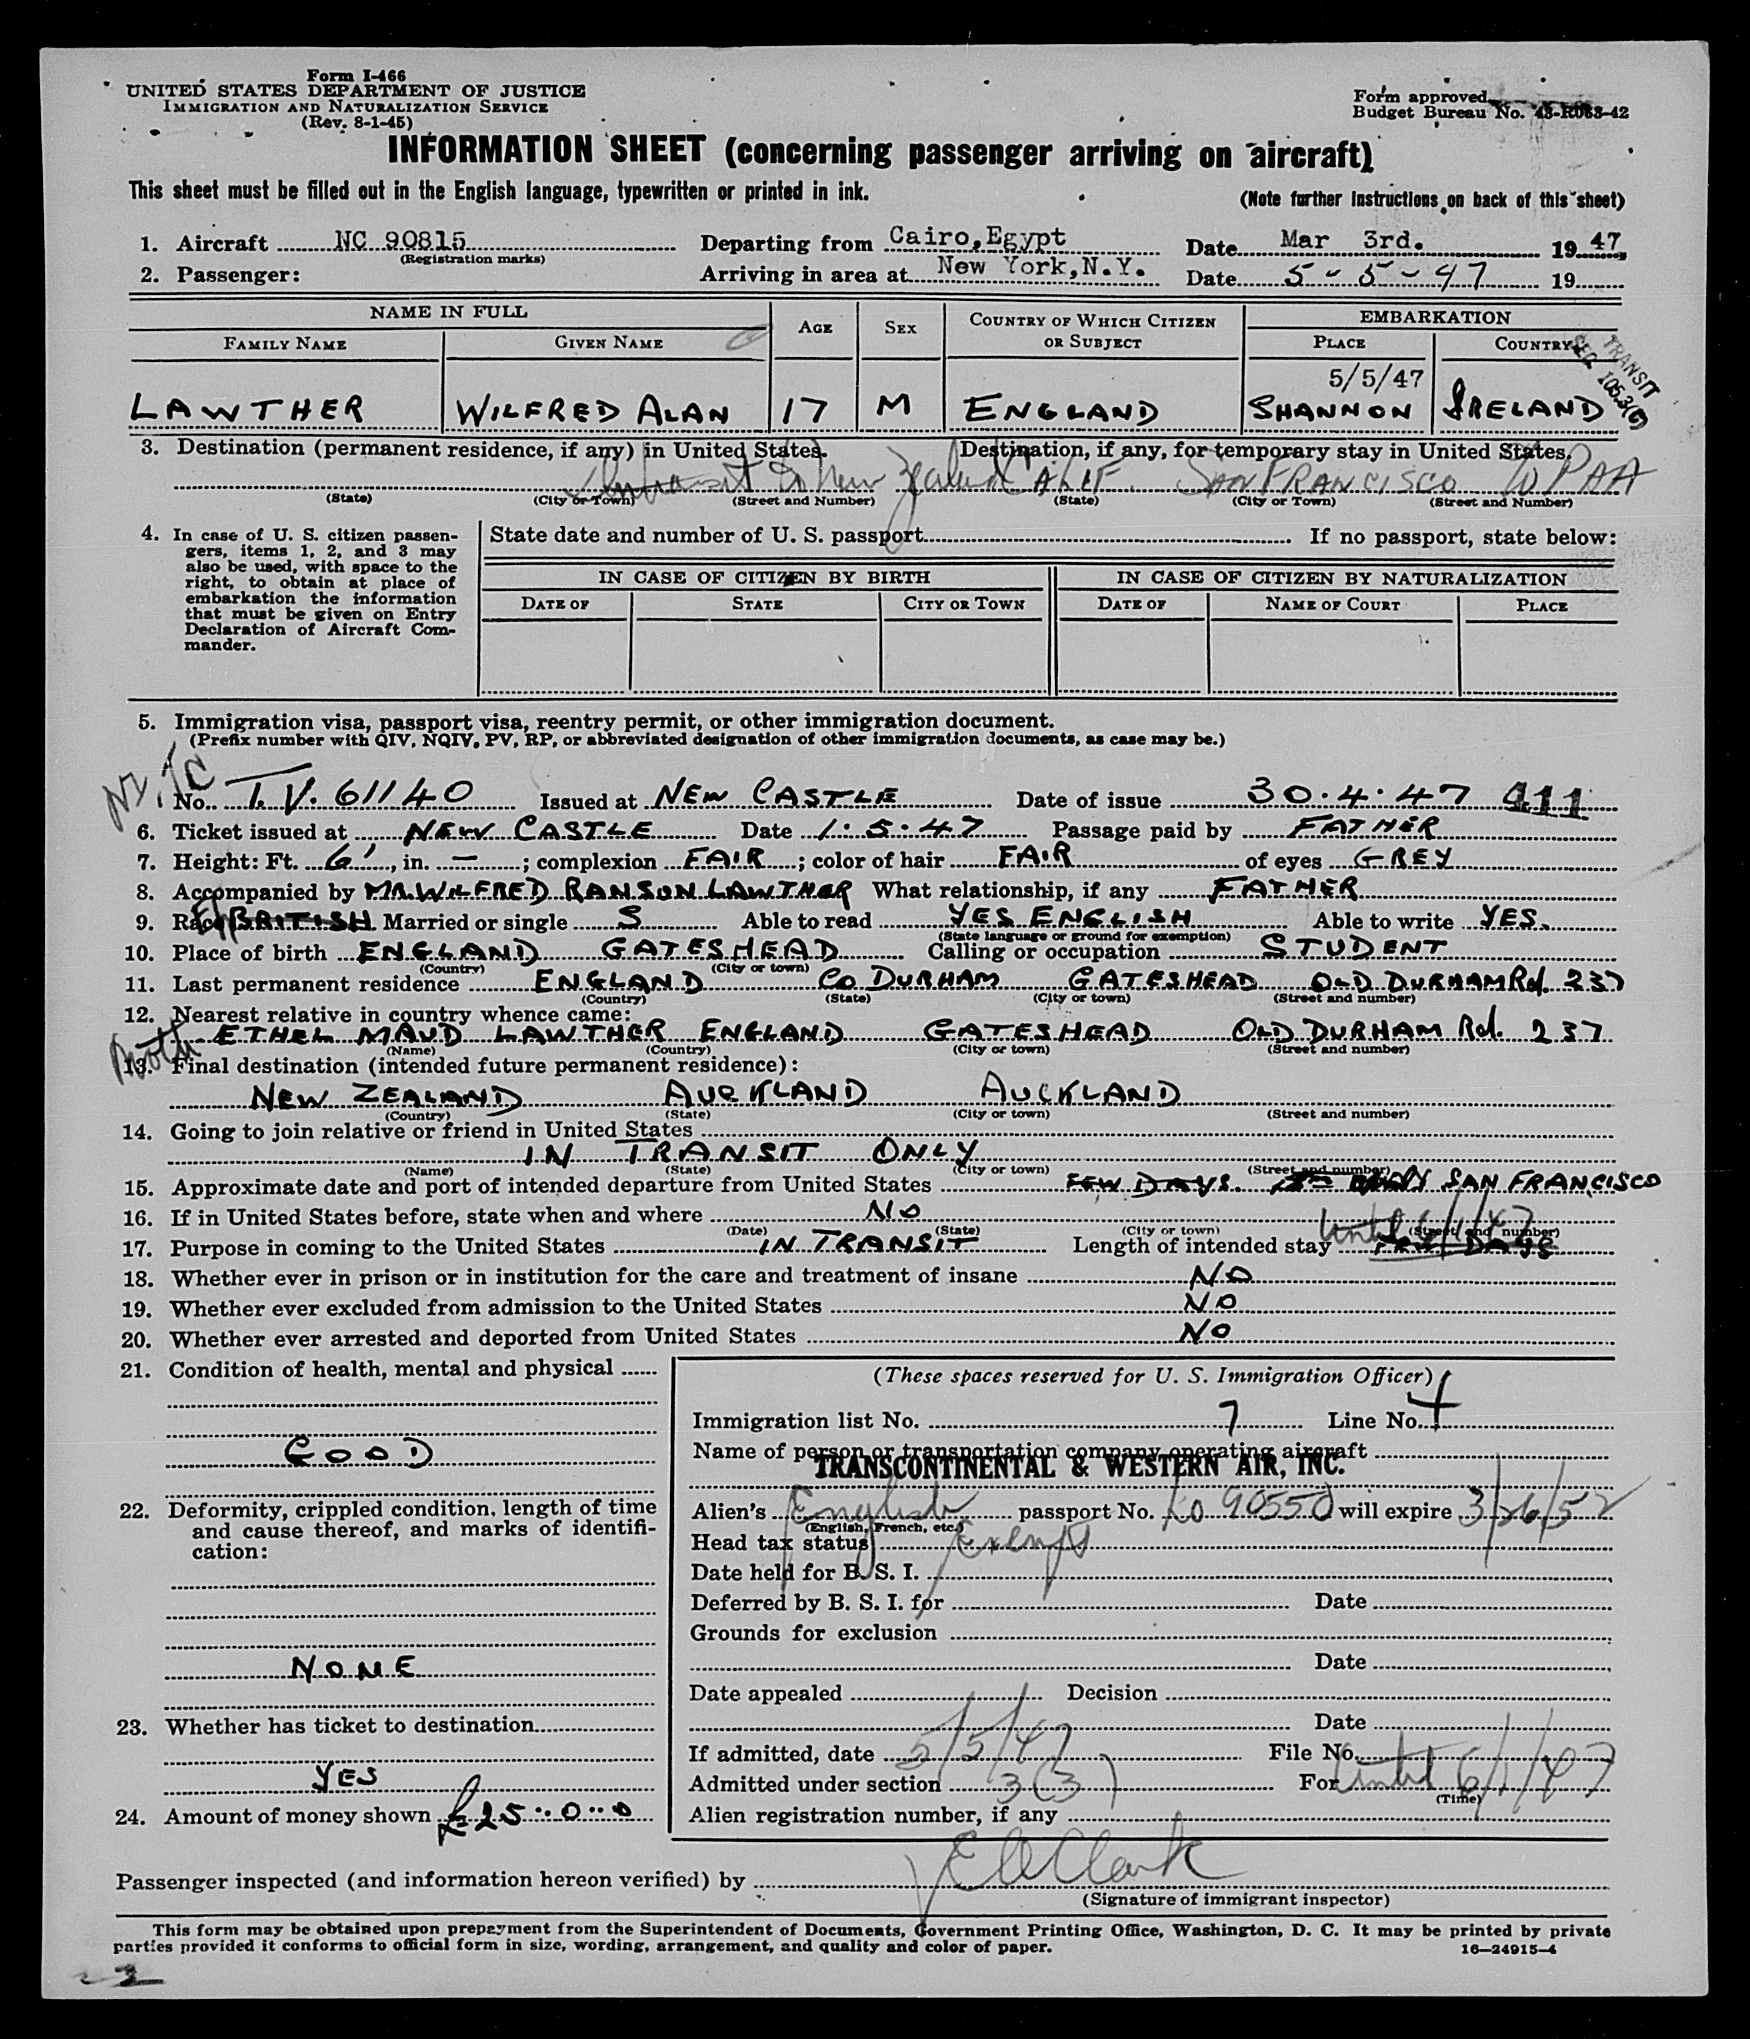 Form I-466
UNITED STATES DEPARTMENT OF JUSTICE
IMMIGRATION AND NATURALIZATION SERVICE
(Rev. 8-1-45)
Form approved
Budget Bureau No. 43-R083-42
INFORMATION SHEET (concerning passenger arriving on aircraft)
This sheet must be filled out in the English language, typewritten or printed in ink.
(Note further instructions on back of this sheet)
1. Aircraft NC 90815 Departing from Cairo, Egypt Date Mar 3rd. 19 47
(Registration marks)
2. Passenger: Arriving in area at New York, N.Y. Date 5-5-47 19
NAME IN FULL AGE SEX COUNTRY OF WHICH CITIZEN OR SUBJECT EMBARKATION
FAMILY NAME GIVEN NAME PLACE COUNTRY
TRANSIT
SEC 105.3(6)
5/5/47
LAWTHER WILFRED ALAN 17 M ENGLAND SHANNON IRELAND
3. Destination (permanent residence, if any) in United States. Destination, if any, for temporary stay in United States.
Intransit to New Zealand SAN FRANCISCO PAA
(State) (City or Town) (Street and Number) (State) (City or Town) (Street and Number)
4. In case of U. S. citizen passen-
gers, items 1, 2, and 3 may
also be used, with space to the
right, to obtain at place of
embarkation the information
that must be given on Entry
Declaration of Aircraft Com-
mander.
State date and number of U. S. passport If no passport, state below:
IN CASE OF CITIZEN BY BIRTH IN CASE OF CITIZEN BY NATURALIZATION
DATE OF STATE CITY OR TOWN DATE OF NAME OF COURT PLACE
5. Immigration visa, passport visa, reentry permit, or other immigration document.
(Prefix number with QIV, NQIV, PV, RP, or abbreviated designation of other immigration documents, as case may be.)
No. T.V. 61140 Issued at NEW CASTLE Date of issue 30.4.47 411
6. Ticket issued at NEW CASTLE Date 1.5.47 Passage paid by FATHER
7. Height: Ft. 6', in. —; complexion FAIR; color of hair FAIR of eyes GREY
8. Accompanied by MR. WILFRED RANSON LAWTHER What relationship, if any FATHER
9. Race BRITISH Married or single S Able to read YES ENGLISH Able to write YES.
(State language or ground for exemption)
10. Place of birth ENGLAND GATESHEAD Calling or occupation STUDENT
(Country) (City or town)
11. Last permanent residence ENGLAND CO DURHAM GATESHEAD OLD DURHAM Rd. 237
(Country) (State) (City or town) (Street and number)
12. Nearest relative in country whence came:
Moth ETHEL MAUD LAWTHER ENGLAND GATESHEAD OLD DURHAM Rd. 237
(Name) (Country) (City or town) (Street and number)
13. Final destination (intended future permanent residence):
NEW ZEALAND AUCKLAND AUCKLAND
(Country) (State) (City or town) (Street and number)
14. Going to join relative or friend in United States
IN TRANSIT ONLY
(Name) (State) (City or town) (Street and number)
15. Approximate date and port of intended departure from United States FEW DAYS. SAN FRANCISCO
16. If in United States before, state when and where NO
(Date) (State) (City or town) (Street and number)
17. Purpose in coming to the United States IN TRANSIT Length of intended stay FEW DAYS Until 6/1/47
18. Whether ever in prison or in institution for the care and treatment of insane NO
19. Whether ever excluded from admission to the United States NO
20. Whether ever arrested and deported from United States NO
21. Condition of health, mental and physical
GOOD
22. Deformity, crippled condition, length of time
and cause thereof, and marks of identifi-
cation:
NONE
23. Whether has ticket to destination
YES
24. Amount of money shown £25··0··0
(These spaces reserved for U. S. Immigration Officer)
Immigration list No. 7 Line No. 4
Name of person or transportation company operating aircraft
TRANSCONTINENTAL & WESTERN AIR, INC.
Alien's English passport No. LO 90550 will expire 3/26/52
(English, French, etc.)
Head tax status Exempt
Date held for B. S. I.
Deferred by B. S. I. for Date
Grounds for exclusion
Date
Date appealed Decision
Date
If admitted, date 5/5/47 File No.
Admitted under section 3(3) For Until 6/1/47
(Time)
Alien registration number, if any
Passenger inspected (and information hereon verified) by E C Clark
(Signature of immigrant inspector)
This form may be obtained upon prepayment from the Superintendent of Documents, Government Printing Office, Washington, D. C. It may be printed by private
parties provided it conforms to official form in size, wording, arrangement, and quality and color of paper.
16—24915-4